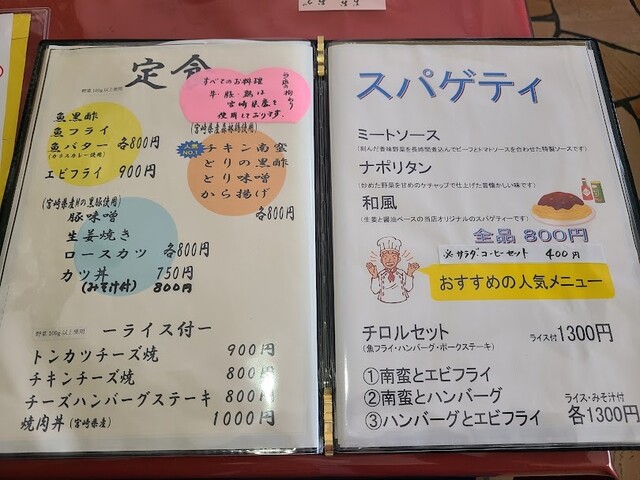 定食
野菜100g以上使用
すべてのお料理
牛・豚・鶏は
宮崎県産を
使用しております。
魚黒酢
魚フライ
魚バター 各800円
(カラスカレー使用)
エビフライ 900円
(宮崎県産森林鶏使用)
人気NO.1
チキン南蛮
とりの黒酢
とり味噌
から揚げ
各800円
(宮崎県産Mの黒豚使用)
豚味噌
生姜焼き
ロースカツ 各800円
カツ丼 750円
(みそ汁付) 800円
野菜100g以上使用
ーライス付ー
トンカツチーズ焼 900円
チキンチーズ焼 800円
チーズハンバーグステーキ 800円
焼肉丼(宮崎県産) 1000円
スパゲティ
ミートソース
(刻んだ香味野菜を長時間煮込んでビーフとトマトソースを合わせた特製ソースです)
ナポリタン
(炒めた野菜を甘めのケチャップで仕上げた昔懐かしい味です)
和風
(生姜と醤油ベースの当店オリジナルのスパゲティーです)
全品 800円
※サラダ・コーヒーセット 400円
おすすめの人気メニュー
チロルセット ライス付 1300円
(魚フライ・ハンバーグ・ポークステーキ)
①南蛮とエビフライ
②南蛮とハンバーグ ライス・みそ汁付
③ハンバーグとエビフライ 各1300円